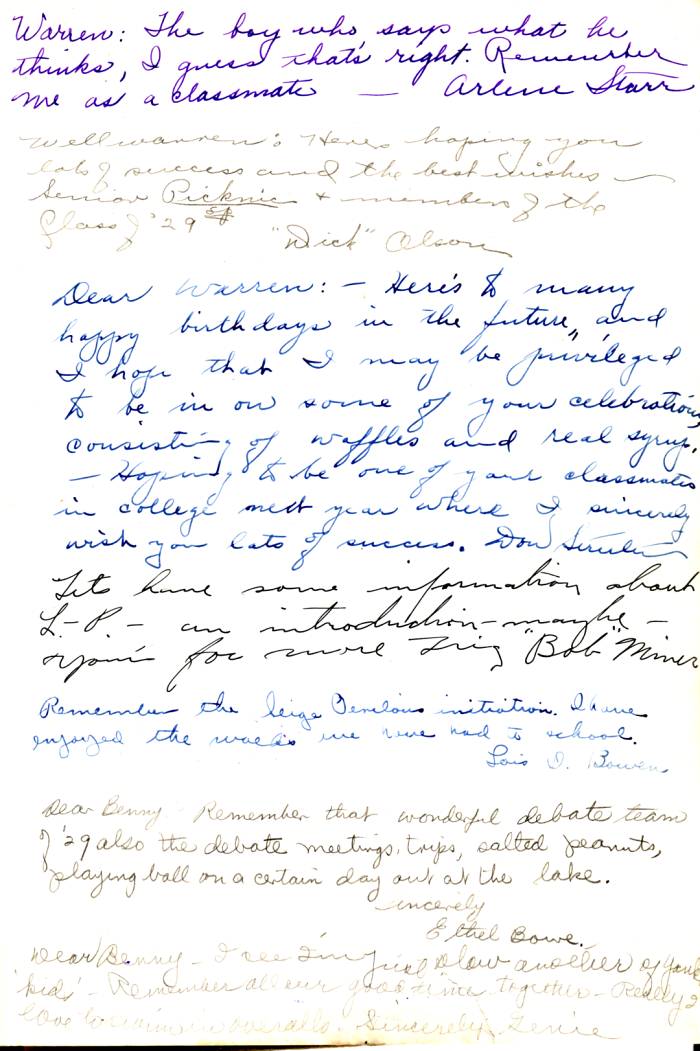 Warren: The boy who says what he
thinks, I guess that's right. Remember
me as a classmate — Arlene Starr
Well warren: Heres hoping you
lots of success and the best wishes —
Senior Picknic + members of the
Class of '29
"Dick" Olson
Dear Warren: — Here's to many
happy birthdays in the future, and
I hope that I may be privileged
to be in on some of your celebrations
consisting of waffles and real syrup.
— Hoping to be one of your classmates
in college next year where I sincerely
wish you lots of success. Don
Lets have some information about
L.-P. — an introduction — maybe —
for more Trig "Bob" Miner
Remember the initiation. I have
enjoyed the walks we have had to school.
Lois I. Bowen
Dear Benny Remember that wonderful debate team
of '29 also the debate meetings, trips, salted peanuts,
playing ball on a certain day out at the lake.
Sincerely
Ethel Bowe.
Dear Benny — I see I'm just another of your
"kids" — Remember all our good times together — Really I
love in overalls. Sincerely,